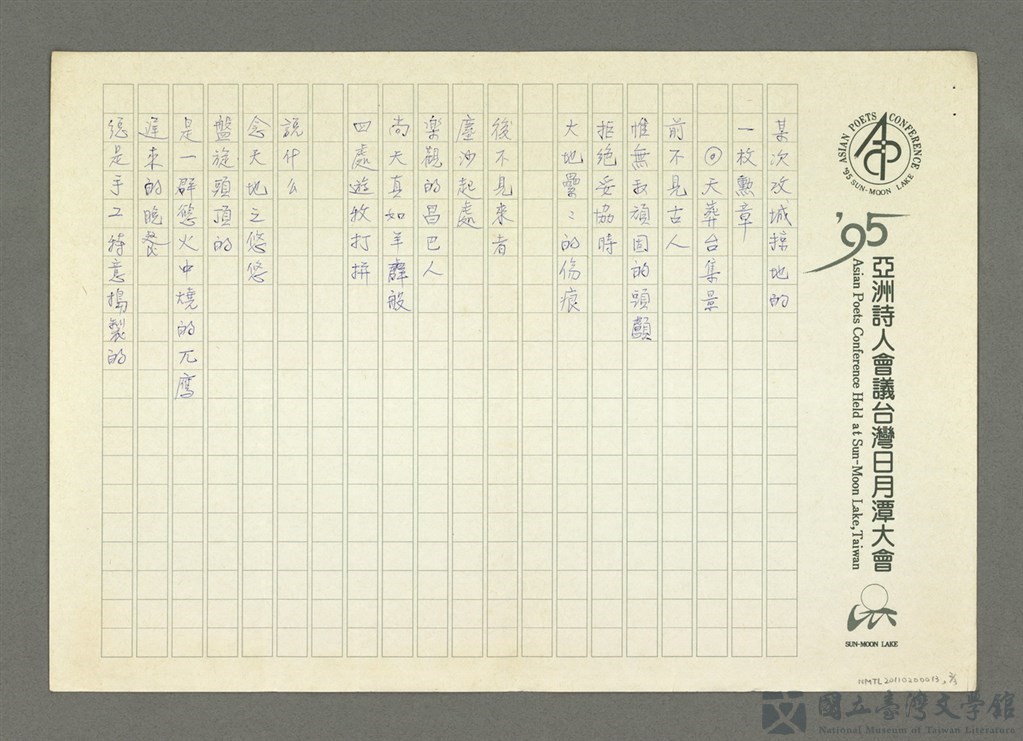 ASIAN POETS CONFERENCE
'95 SUN-MOON LAKE
'95
亞洲詩人會議台灣日月潭大會
Asian Poets Conference Held at Sun-Moon Lake, Taiwan
SUN-MOON LAKE
某次攻城掠地的
一枚勳章
◎天葬台集景
前不見古人
惟無敵頑固的頭顱
拒絕妥協時
大地疊〻的傷痕
後不見來者
塵沙起處
樂觀的昌巴人
尚天真如羊群般
四處遊牧打拼
說什么
念天地之悠悠
盤旋頭頂的
是一群慾火中燒的兀鷹
遲來的晚餐
總是手工特意搗製的
NMTL20110200013, 2/3
國立臺灣文學館
National Museum of Taiwan Literature